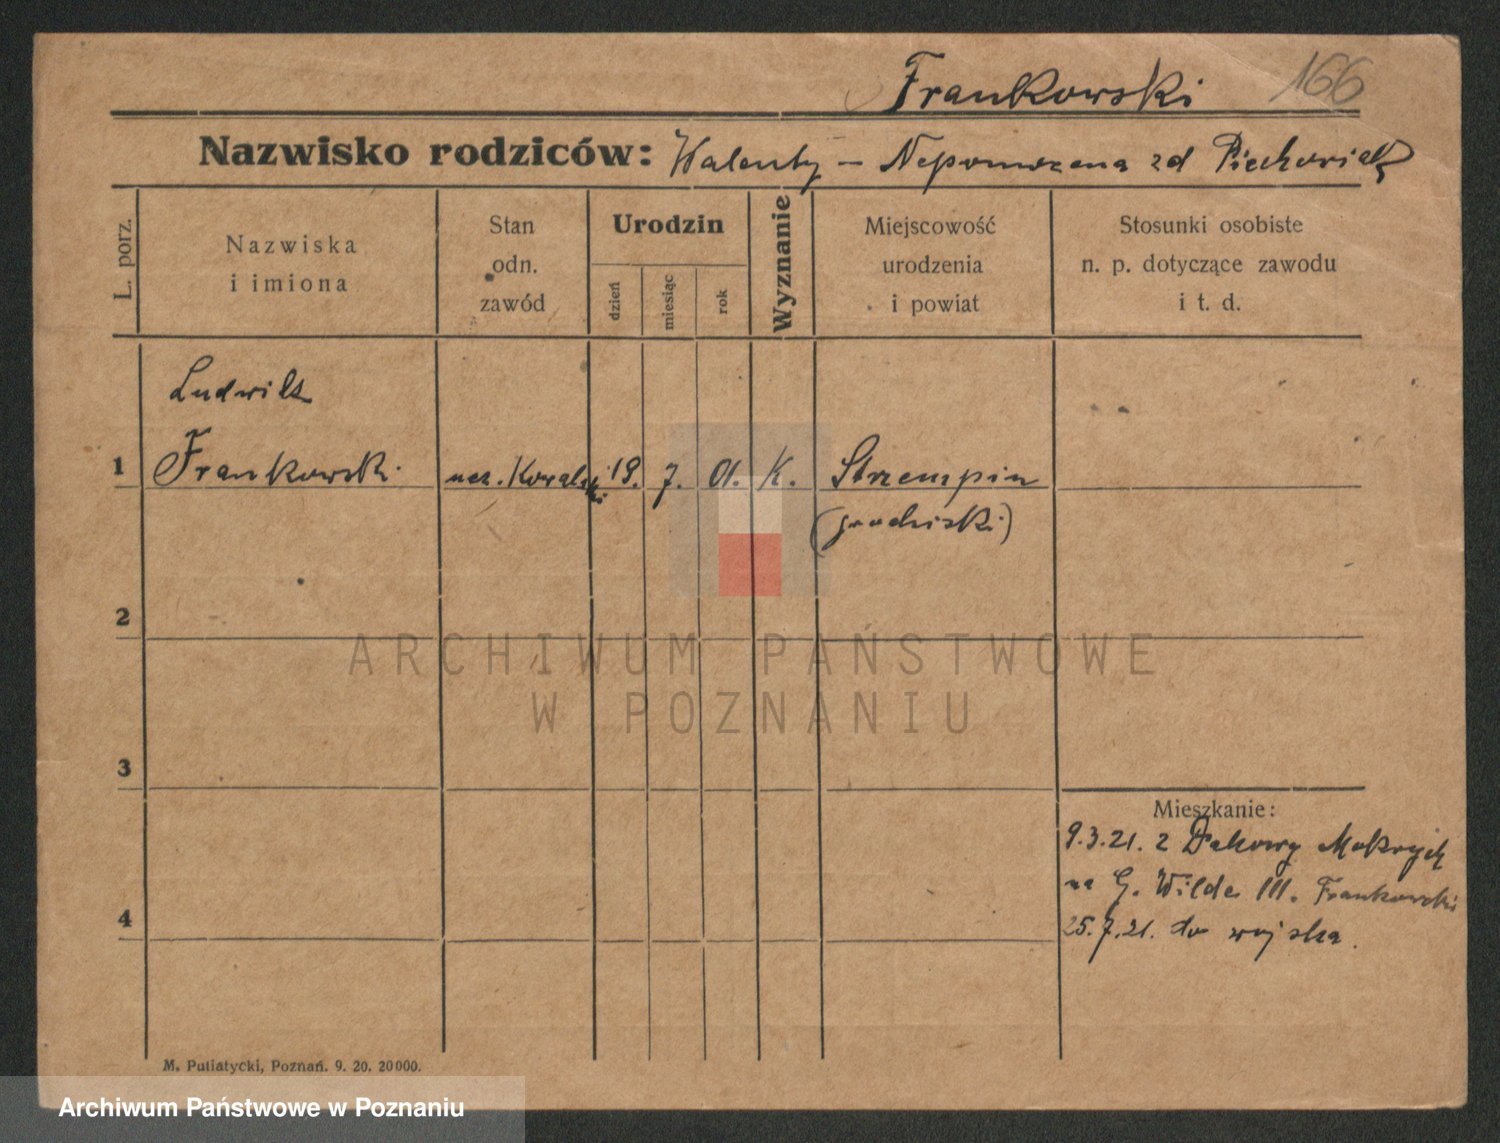 Frankowski 166
Nazwisko rodziców: Walenty – Nepomucena zd Piechowiak
L. porz.
Nazwiska
i imiona
Stan
odn.
zawód
Urodzin
dzień
miesiąc
rok
Wyznanie
Miejscowość
urodzenia
i powiat
Stosunki osobiste
n. p. dotyczące zawodu
i t. d.
Ludwik
1 Frankowski ucz. Kowalski 19. 7. 01. K. Strzempin
(grodziski)
2
3
4
Mieszkanie:
9.3.21. z Dakowy Mokrych
na G. Wilda III. Frankowski
25.7.21. do wojska.
M. Putiatycki, Poznań. 9. 20. 20000.
ARCHIWUM PAŃSTWOWE
W POZNANIU
Archiwum Państwowe w Poznaniu